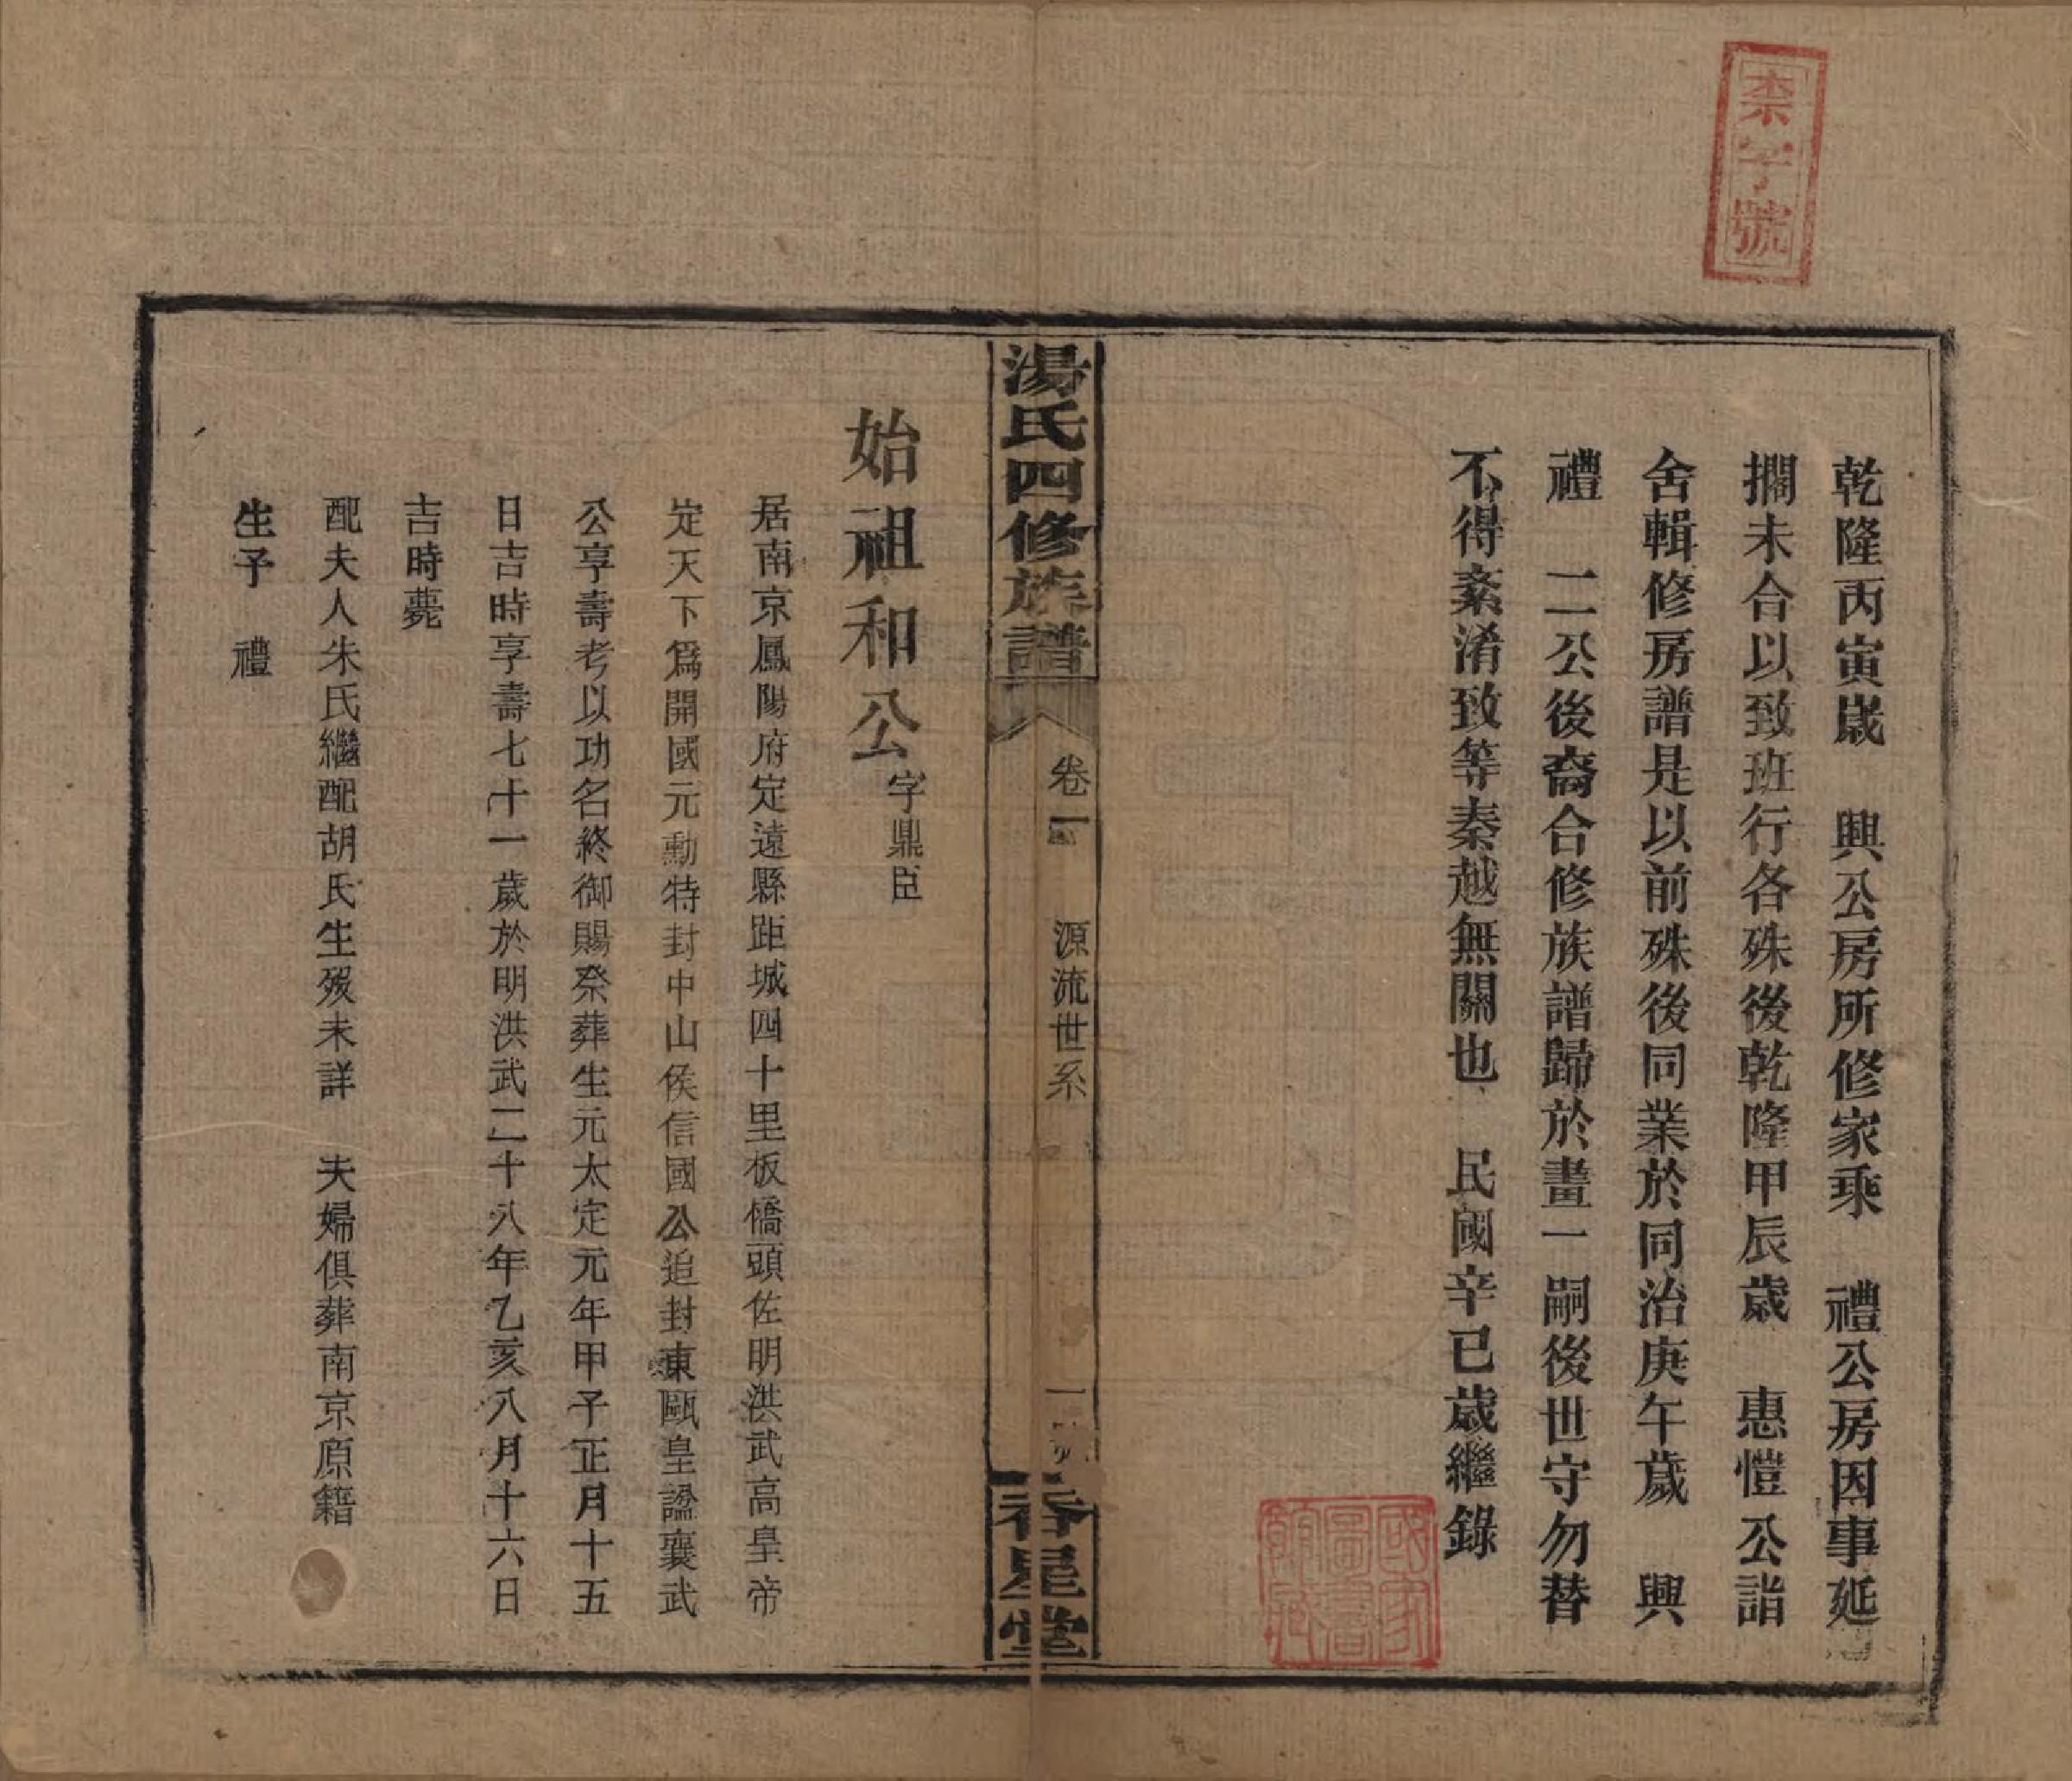 柰字號
乾隆丙寅歲　興公房所修家乘　禮公房因事延
擱未合以致班行各殊後乾隆甲辰歲　惠愷公詣
舍輯修房譜是以前殊後同業於同治庚午歲　興
禮　二公後裔合修族譜歸於畫一嗣後世守勿替
不得紊淆致等秦越無關也　民國辛巳歲繼錄
國家圖書館藏
湯氏四修族譜
卷一　源流世系
春星堂
始祖和公字鼎臣
居南京鳳陽府定遠縣距城四十里板橋頭佐明洪武高皇帝
定天下爲開國元勳特封中山侯信國公追封東甌皇諡襄武
公享壽考以功名終御賜祭葬生元太定元年甲子正月十五
日吉時享壽七十一歲於明洪武二十八年乙亥八月十六日
吉時薨
配夫人朱氏繼配胡氏生歿未詳　夫婦俱葬南京原籍
生子　禮